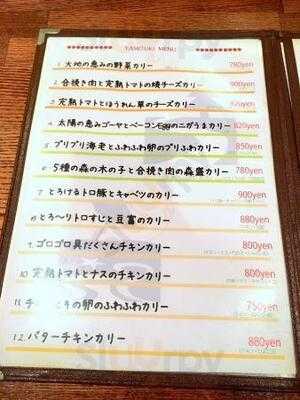 YAMITUKI MENU
1. 大地の恵みの野菜カリー 780yen
2. 合挽き肉と完熟トマトの焼チーズカリー 900yen
3. 完熟トマトとほうれん草のチーズカリー
4. 太陽の恵みゴーヤとベーコンEggのニガうまカリー 820yen
5. プリプリ海老とふわふわ卵のプリふわカリー 850yen
6. 5種の森の木の子と合挽き肉の森盛カリー 780yen
7. とろけるトロ豚とキャベツのカリー 900yen
8. とろ〜りトロすじと豆富のカリー 880yen
9. ゴロゴロ具だくさんチキンカリー 800yen
10. 完熟トマトとナスのチキンカリー 800yen
11. チ の卵のふわふわカリー 750yen
12. バターチキンカリー 880yen